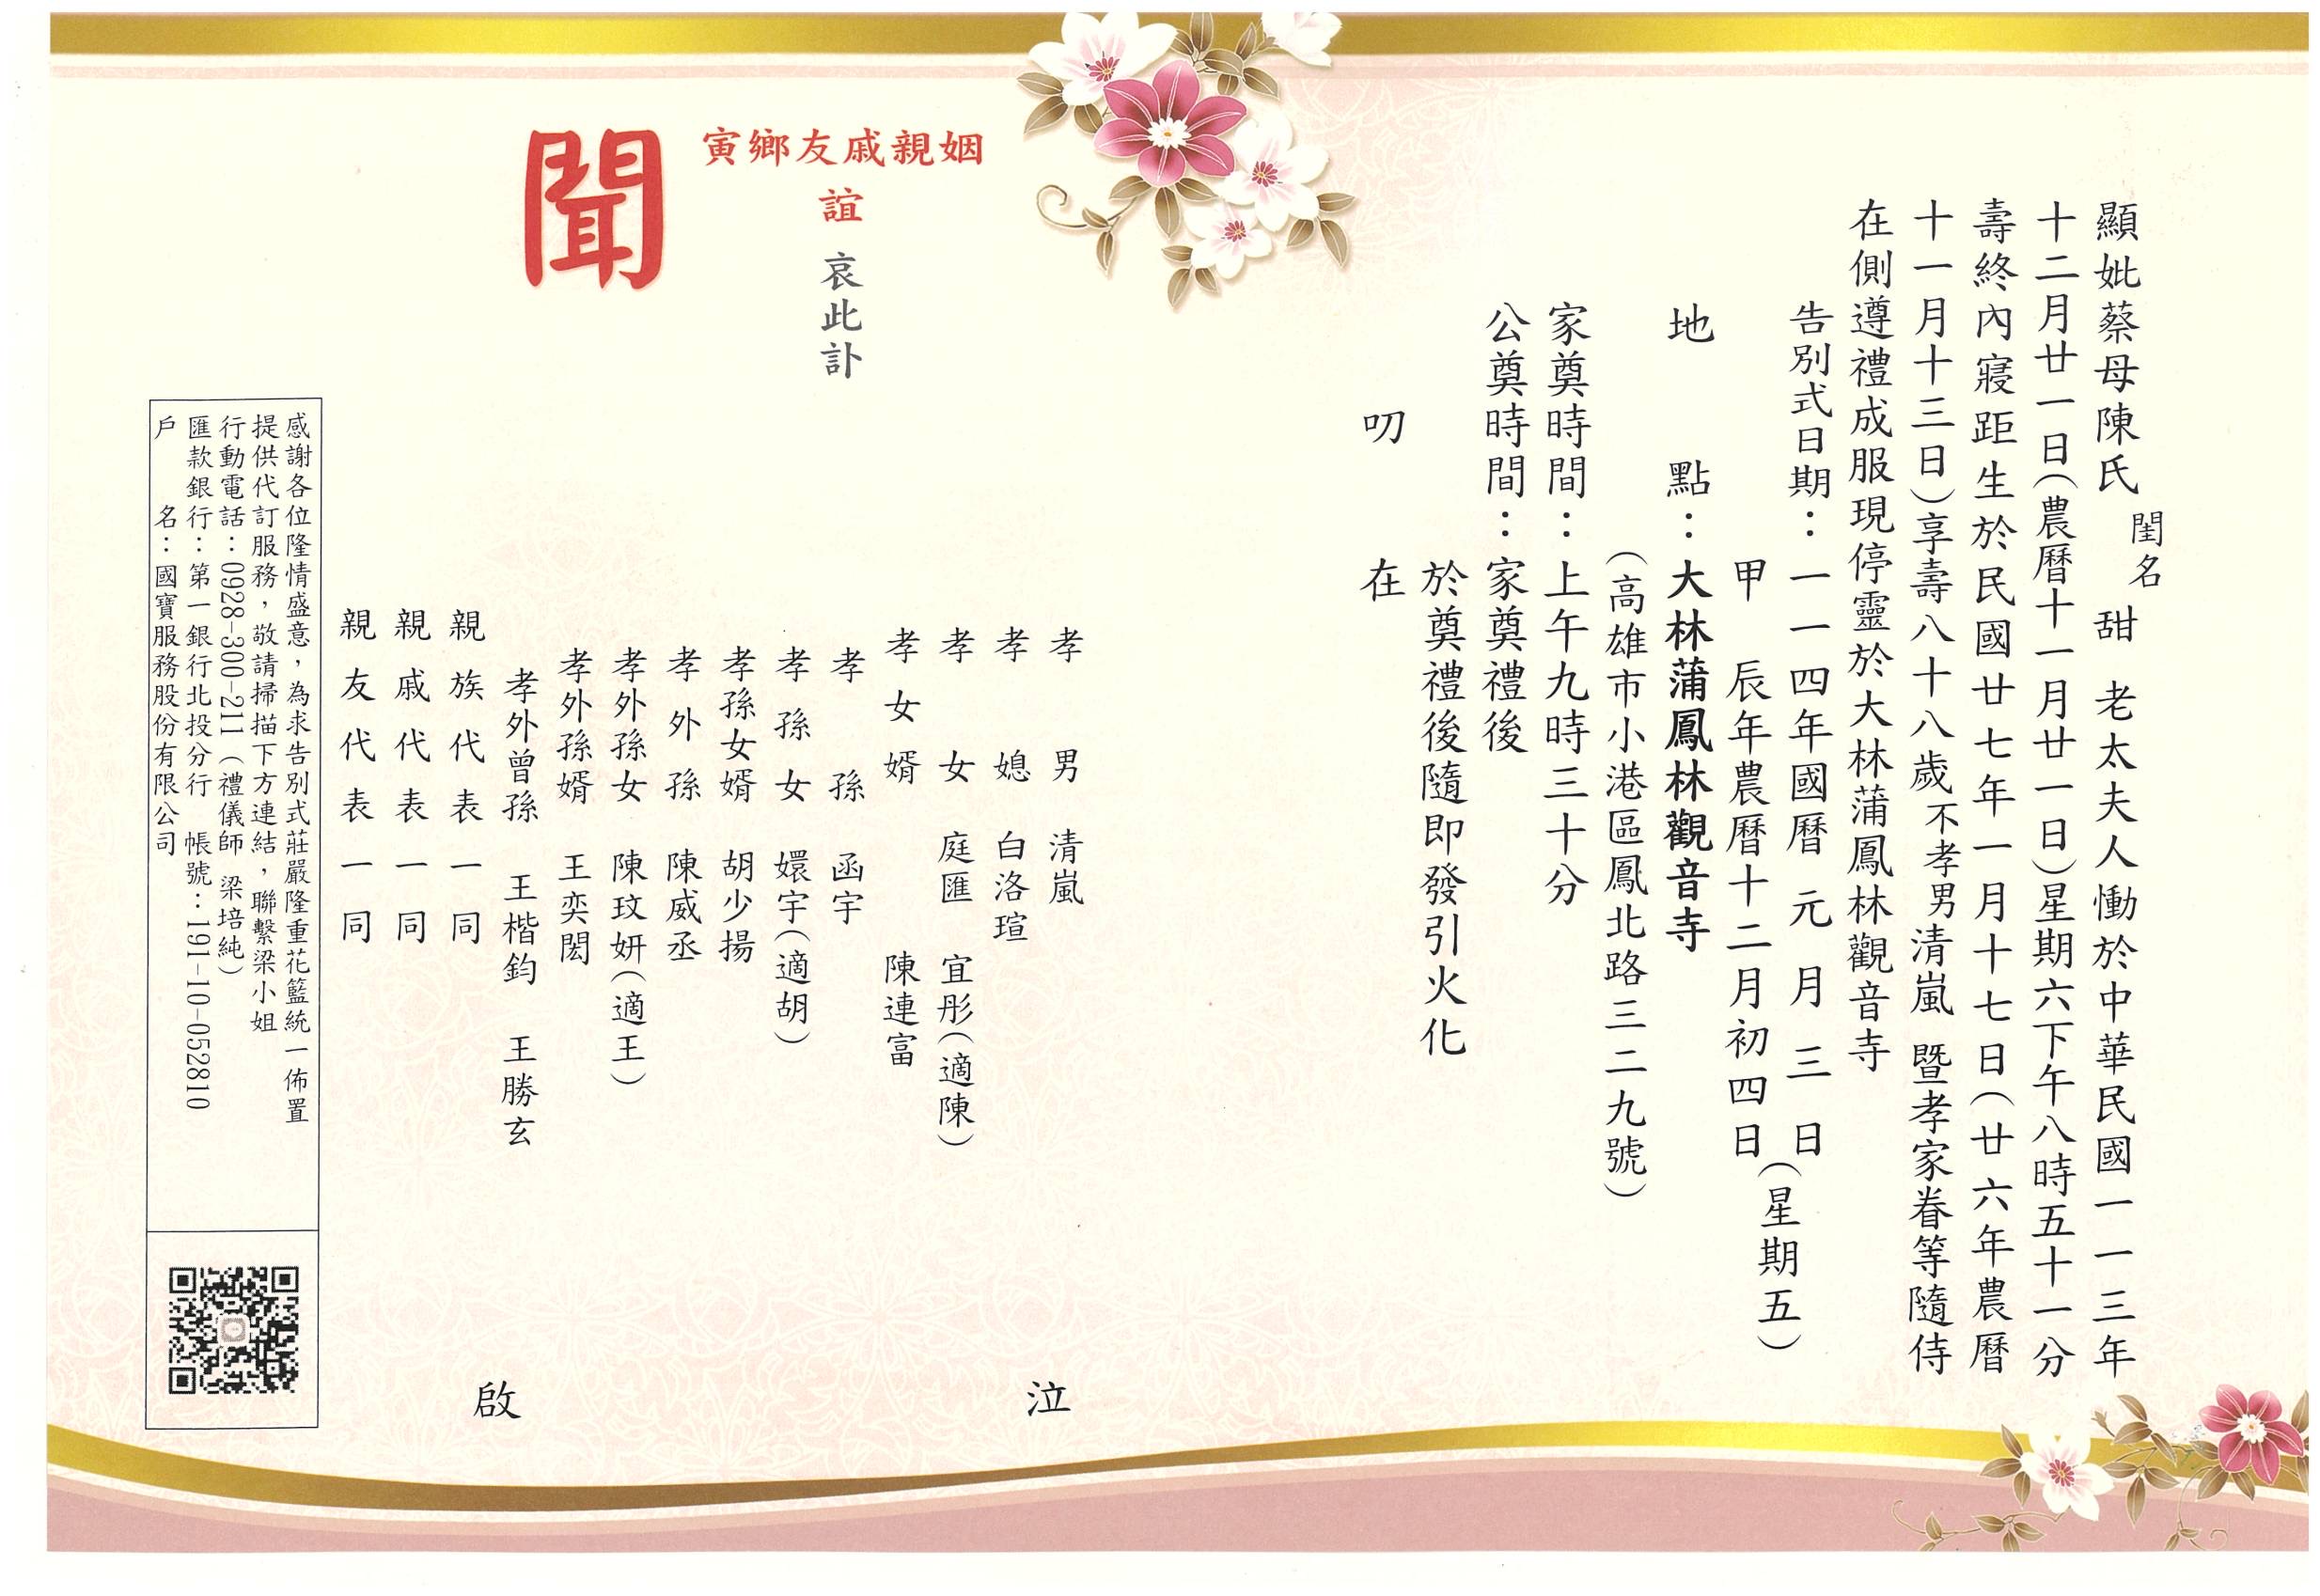 顯妣蔡母陳氏閨名甜 老太夫人慟於中華民國一一三年
十二月廿一日(農曆十一月廿一日)星期六下午八時五十一分
壽終內寢距生於民國廿七年一月十七日(廿六年農曆
十一月十三日)享壽八十八歲不孝男清嵐 暨孝家眷等隨侍
在側遵禮成服現停靈於大林蒲鳳林觀音寺
告別式日期：一一四年國曆 元 月 三 日
甲 辰年農曆十二月初四日
(星期五)
地 點：大林蒲鳳林觀音寺
(高雄市小港區鳳北路三二九號)
家奠時間：上午九時三十分
公奠時間：家奠禮後
於奠禮後隨即發引火化
叨 在
姻親戚友鄉寅
誼
哀此訃
聞
孝 男 清嵐
孝 媳 白洛瑄
孝 女 庭匯 宜彤(適陳)
孝女婿 陳連富
孝 孫 函宇
孝孫女 嬛宇(適胡)
孝孫女婿 胡少揚
孝外孫 陳威丞
孝外孫女 陳玟妍(適王)
孝外孫婿 王奕閎
孝外曾孫 王楷鈞 王勝玄
親族代表一同
親戚代表一同
親友代表一同
泣
啟
感謝各位隆情盛意，為求告別式莊嚴隆重花籃統一佈置
提供代訂服務，敬請掃描下方連結，聯繫梁小姐
行動電話：0928-300-211（禮儀師 梁培純）
匯款銀行：第一銀行北投分行 帳號：191-10-052810
戶 名：國寶服務股份有限公司